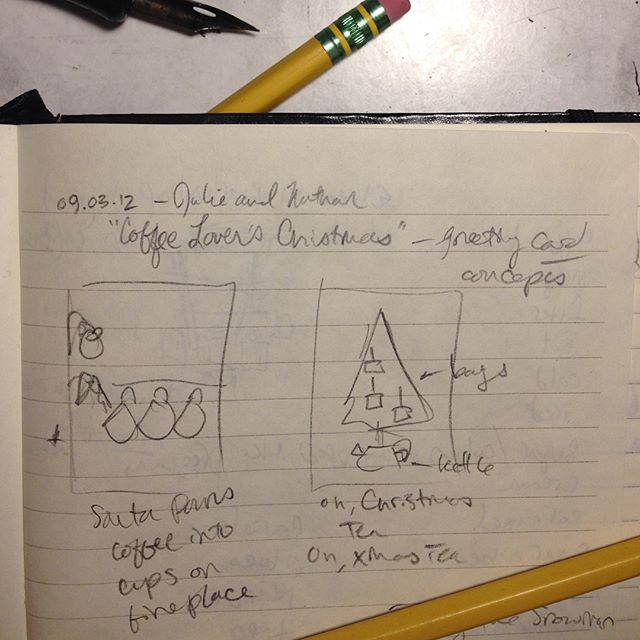 09.03.12 – Julie and Nathan
"Coffee Lover's Christmas" – greeting card
concepts
bags
kettle
Santa Pours
coffee into
cups on
fireplace
oh, Christmas
Tea
Oh, Xmas Tea
Snowman